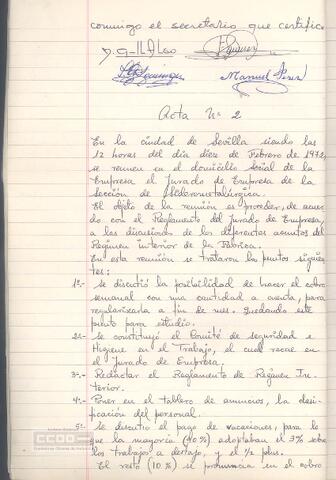 conmigo el secretario que certifico
Manuel Pérez
Acta Nº 2
En la ciudad de Sevilla siendo las
12 horas del día diez de Febrero de 1972,
se reunen en el domicilio social de la
Empresa el Jurado de Empresa de la
sección de Siderometalúrgica.
El objeto de la reunión es proceder, de acuer
do con el Reglamento del Jurado de Empresa,
a las discusiones de los diferentes asuntos del
Regimen interior de la Fábrica.
En esta reunión se trataron los puntos siguien
tes:
1º.- Se discutió la posibilidad de hacer el cobro
semanal con una cantidad a cuenta, para
regularizarla a fin de mes. Quedando este
punto para estudio.
2º.- Se constituyó el Comité de seguridad e
Higiene en el Trabajo, el cual recae en
Jurado de Empresa.
3º.- Redactar el Reglamento de Régimen In-
terior.
4º.- Poner en el tablero de anuncios, la clasi-
ficación del personal.
5º.- Se discutio el pago de vacaciones, para lo
que la mayoria (90%) adoptaban el 3% sobre
los trabajos a destajo, y el ½ plus.
El resto (10%) se pronuncia en el cobro
CCOO